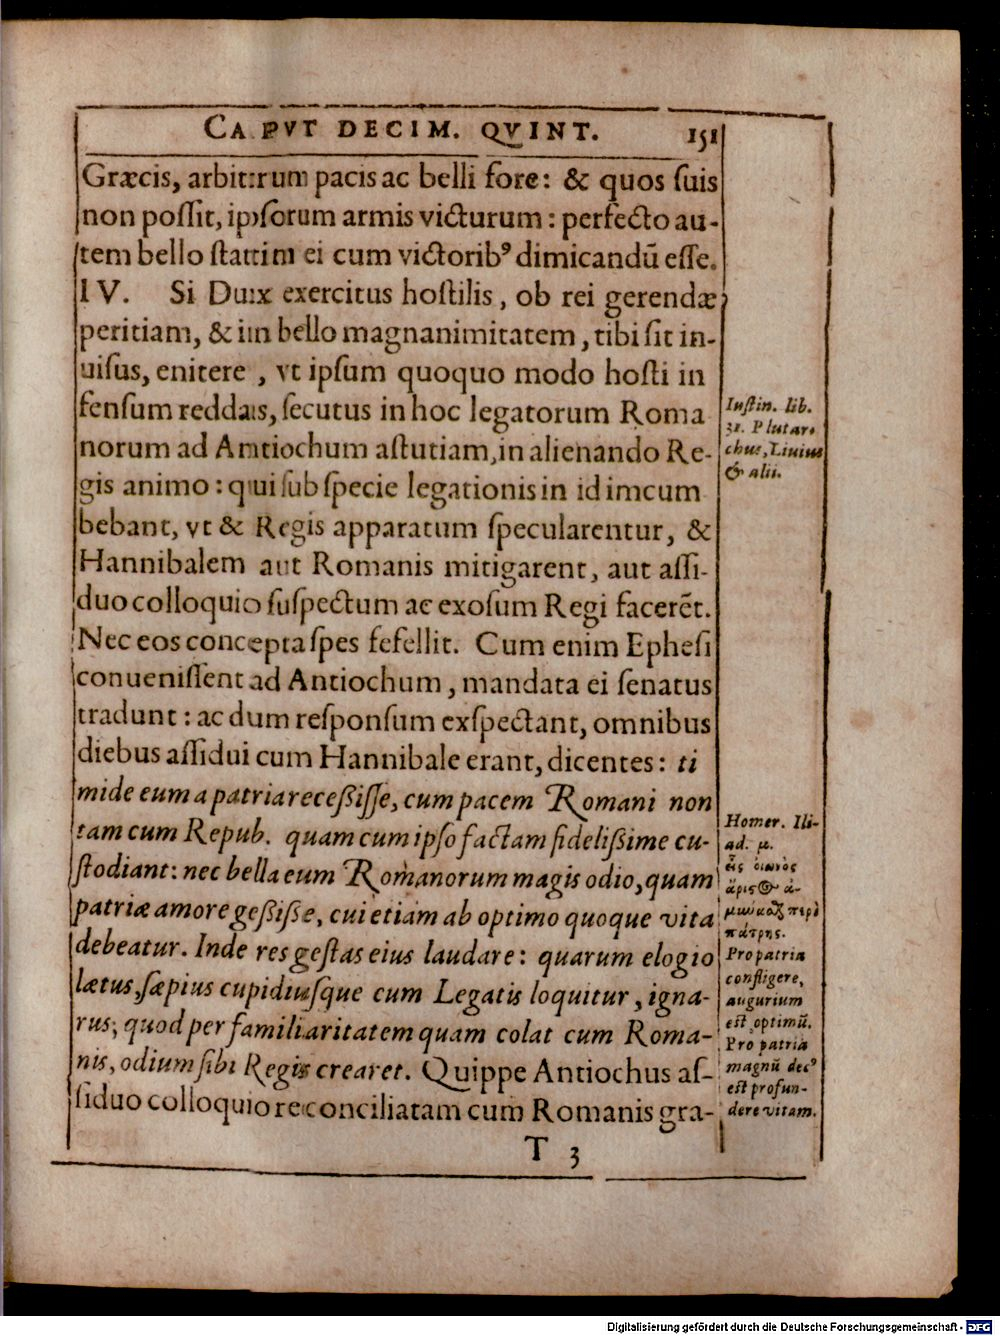 CAPVT DECIM. QVINT. 151
Græcis, arbitrum pacis ac belli fore: & quos suis
non possit, ipsorum armis victurum: perfecto au-
tem bello stattim ei cum victoribꝰ dimicandū esse.
IV. Si Dux exercitus hostilis, ob rei gerendæ
peritiam, & in bello magnanimitatem, tibi sit in-
uisus, enitere, vt ipsum quoquo modo hosti in
fensum reddas, secutus in hoc legatorum Roma
norum ad Antiochum astutiam, in alienando Re-
gis animo: qui sub specie legationis in id imcum
bebant, vt & Regis apparatum specularentur, &
Hannibalem aut Romanis mitigarent, aut assi-
duo colloquio suspectum ac exosum Regi facerēt.
Nec eos concepta spes fefellit. Cum enim Ephesi
conuenissent ad Antiochum, mandata ei senatus
tradunt: ac dum responsum exspectant, omnibus
diebus assidui cum Hannibale erant, dicentes: ti
mide eum a patria recessisse, cum pacem Romani non
tam cum Repub. quam cum ipso factam fidelissime cu-
stodiant: nec bella eum Romanorum magis odio, quam
patriæ amore gessisse, cui etiam ab optimo quoque vita
debeatur. Inde res gestas eius laudare: quarum elogio
lætus, sæpius cupidiusque cum Legatis loquitur, igna-
rus, quod per familiaritatem quam colat cum Roma-
nis, odium sibi Regis crearet. Quippe Antiochus as-
siduo colloquio reconciliatam cum Romanis gra-
T 3
Iustin. lib.
31. Plutar-
chus, Liuius
& alii.
Homer. Ili-
ad. μ.
εἷς οἰωνὸς
ἄριστος ἀ-
μύνεσθαι περὶ
πάτρης.
Pro patria
confligere,
augurium
est optimū.
Pro patria
magnū decꝰ
est profun-
dere vitam.
Digitalisierung gefördert durch die Deutsche Forschungsgemeinschaft - DFG